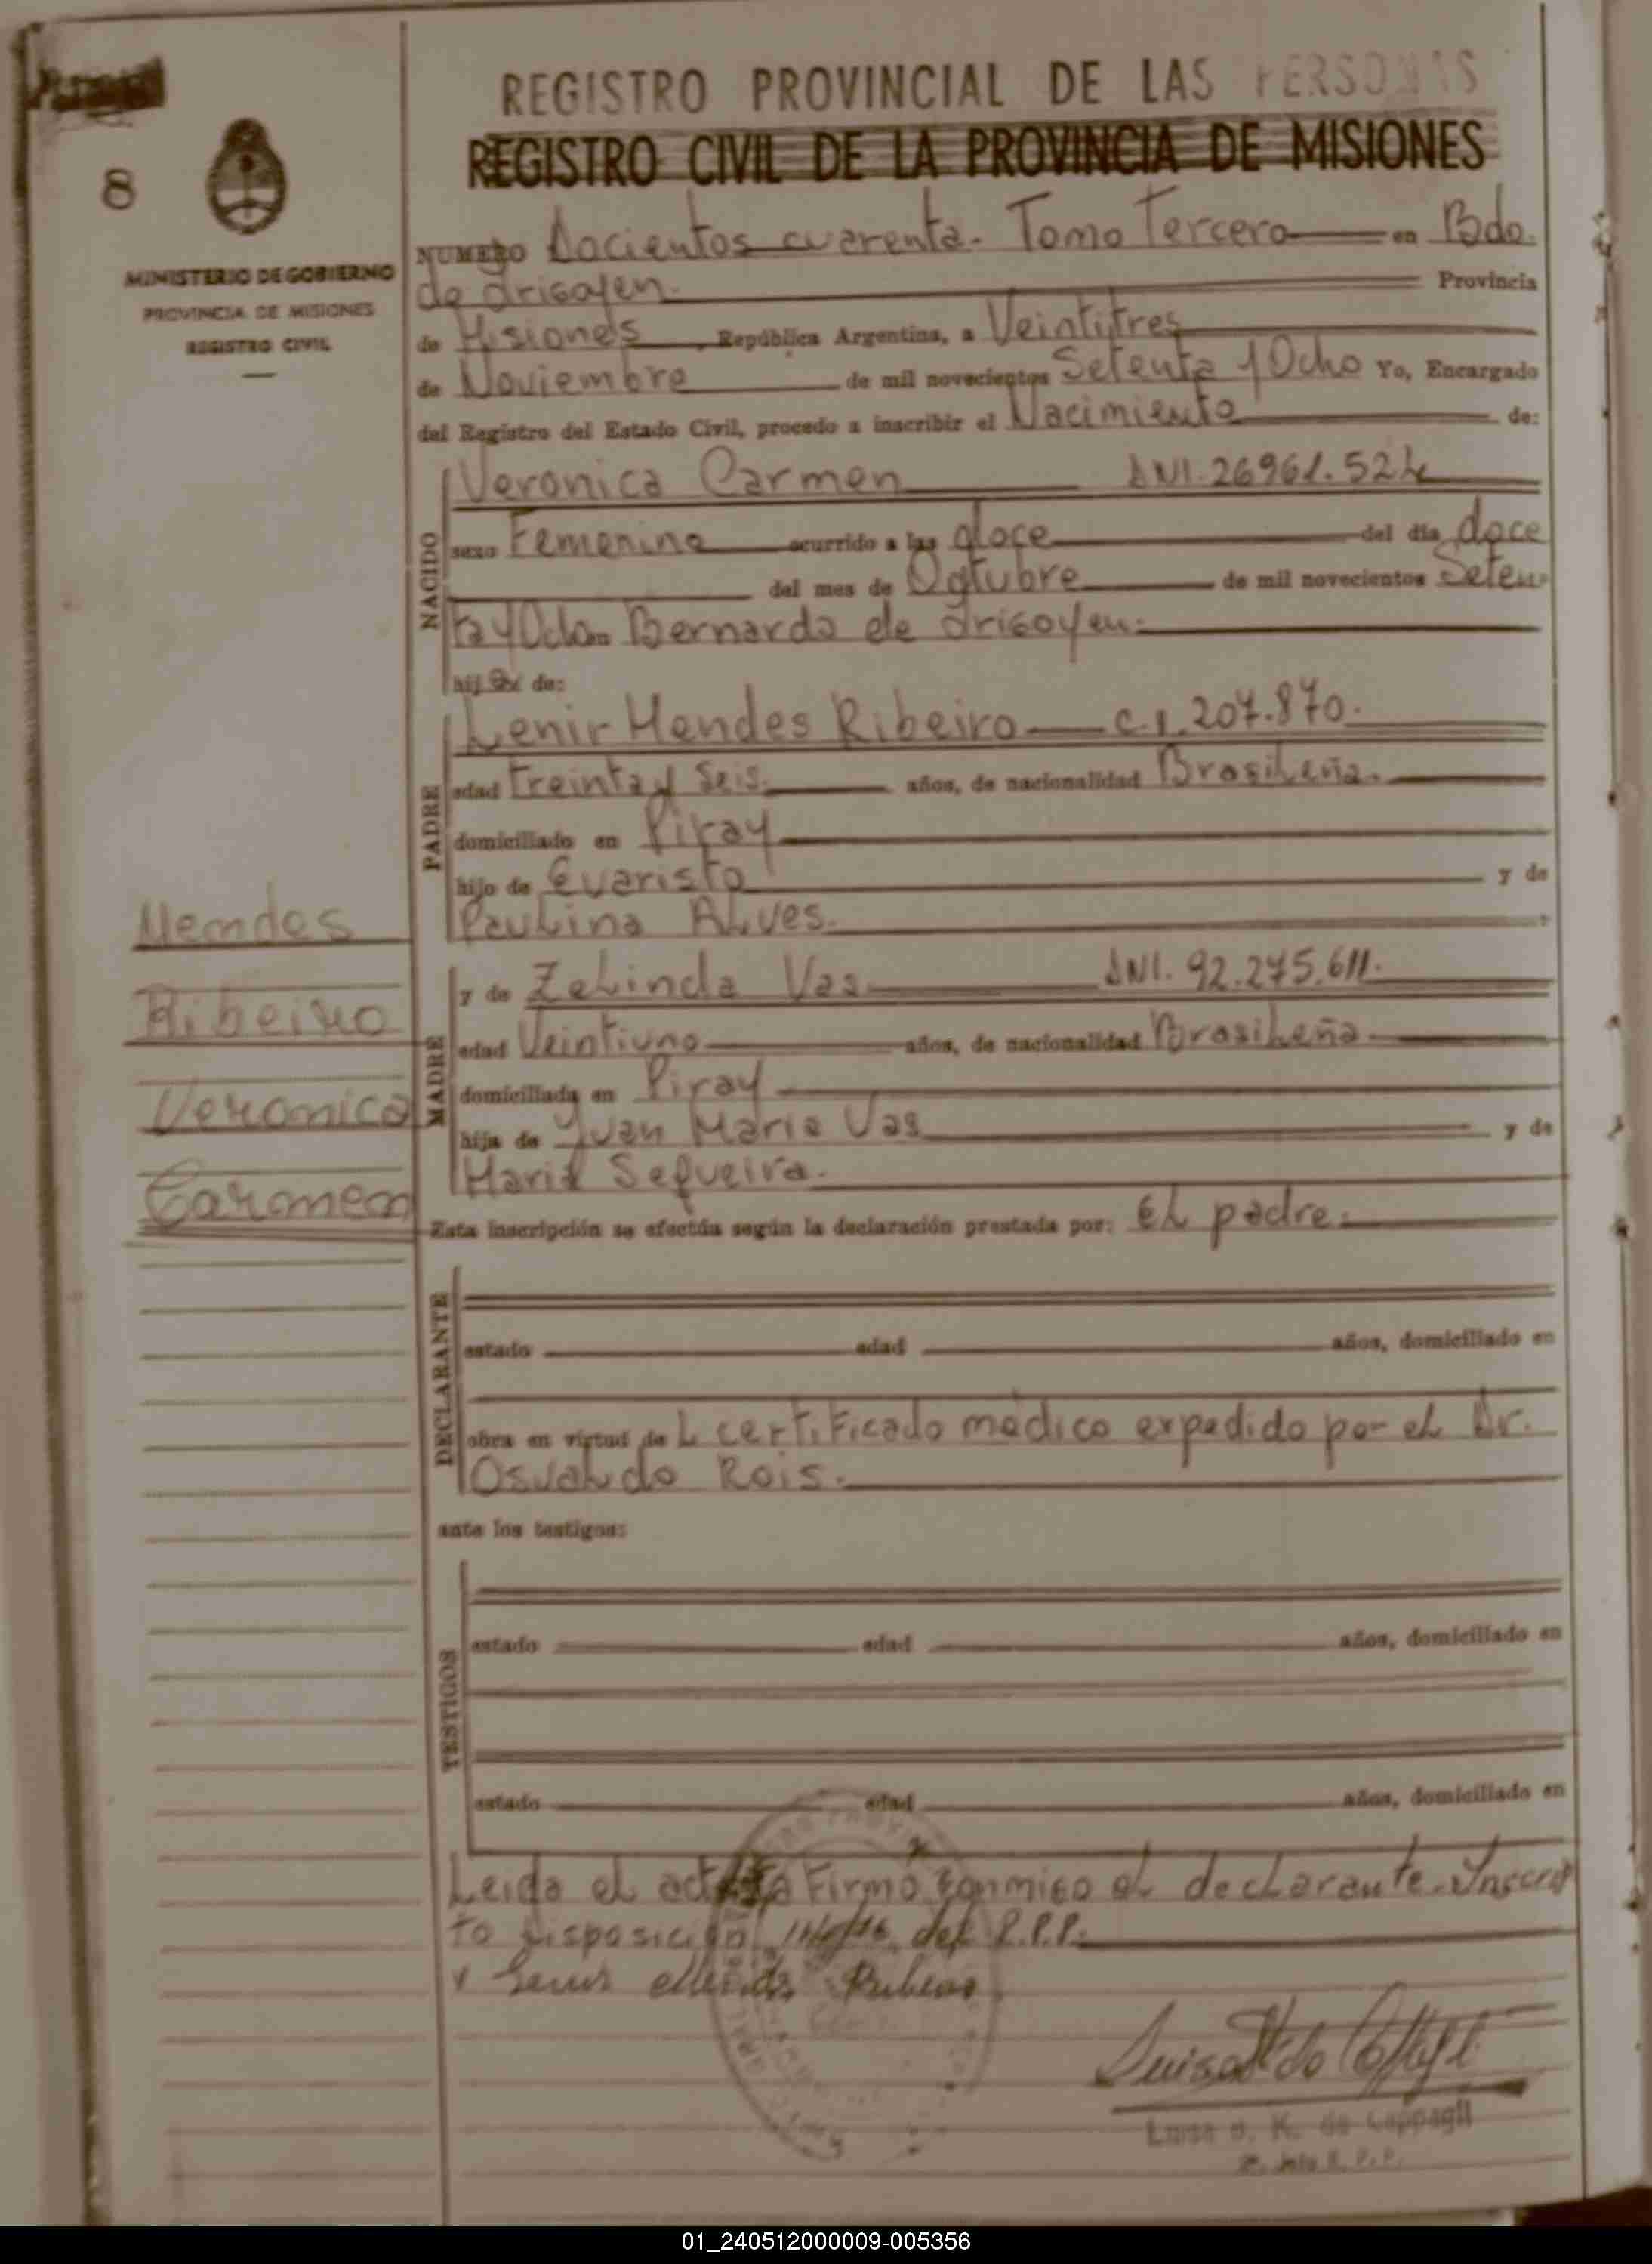 8
MINISTERIO DE GOBIERNO
PROVINCIA DE MISIONES
REGISTRO CIVIL
REGISTRO PROVINCIAL DE LAS PERSONAS
REGISTRO CIVIL DE LA PROVINCIA DE MISIONES
NUMERO Docientos cuarenta. Tomo Tercero en Bdo.
de Irigoyen. Provincia
de Misiones, República Argentina, a Veintitres
de Noviembre de mil novecientos Setenta y Ocho Yo, Encargado
del Registro del Estado Civil, procedo a inscribir el Nacimiento de:
NACIDO
Veronica Carmen DNI. 26961.524
sexo Femenino ocurrido a las doce del día doce
del mes de Octubre de mil novecientos Seten
ta y Ocho en Bernardo de Irigoyen.
hij a de:
PADRE
Lenir Mendes Ribeiro C.I. 207.870.
edad Treinta y Seis. años, de nacionalidad Brasileña.
domiciliado en Piray
hijo de Evaristo y de
Paulina Alves.
Mendes
Ribeiro
Veronica
Carmen
MADRE
y de Zelinda Vas DNI. 92.275.611.
edad Veintiuno años, de nacionalidad Brasileña
domiciliada en Piray
hija de Juan Maria Vas y de
Maria Sequeira.
Esta inscripción se efectúa según la declaración prestada por: El padre.
DECLARANTE
estado edad años, domiciliado en
obra en virtud de L certificado medico expedido por el Dr.
Osvaldo Rois.
ante los testigos:
TESTIGOS
estado edad años, domiciliado en
estado edad años, domiciliado en
Leida el acta Firmó conmigo el declarante. Inscrip
to Disposición del R.P.P.
Lenir Mendes Ribeiro
Luisa D. K. de Coppagli
R. P. P.
01_240512000009-005356